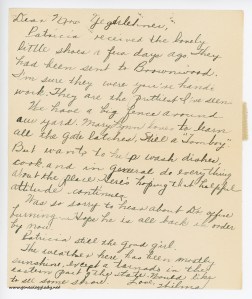 Dear "Now
Patricia received the lovely
little shoes a few days ago. They
had been sent to Brownwood.
I'm sure they were your hands
work. They are the prettiest I've seen.
We have a big fence around
our yard. Mary Lynn loves to learn
all the gate latches. Still a "Tomboy"
But wants to help wash dishes,
cook and in general do everything
about the place. Here's hoping that helpful
attitude continues.
Was so sorry to hear about Dr. office
burning. Hope he is all back in order
by now.
Patricia still the good girl.
The weather here has been mostly
sunshine, except a tornado in the
eastern part of the state. Would like
to see some snow. Love, Thelma